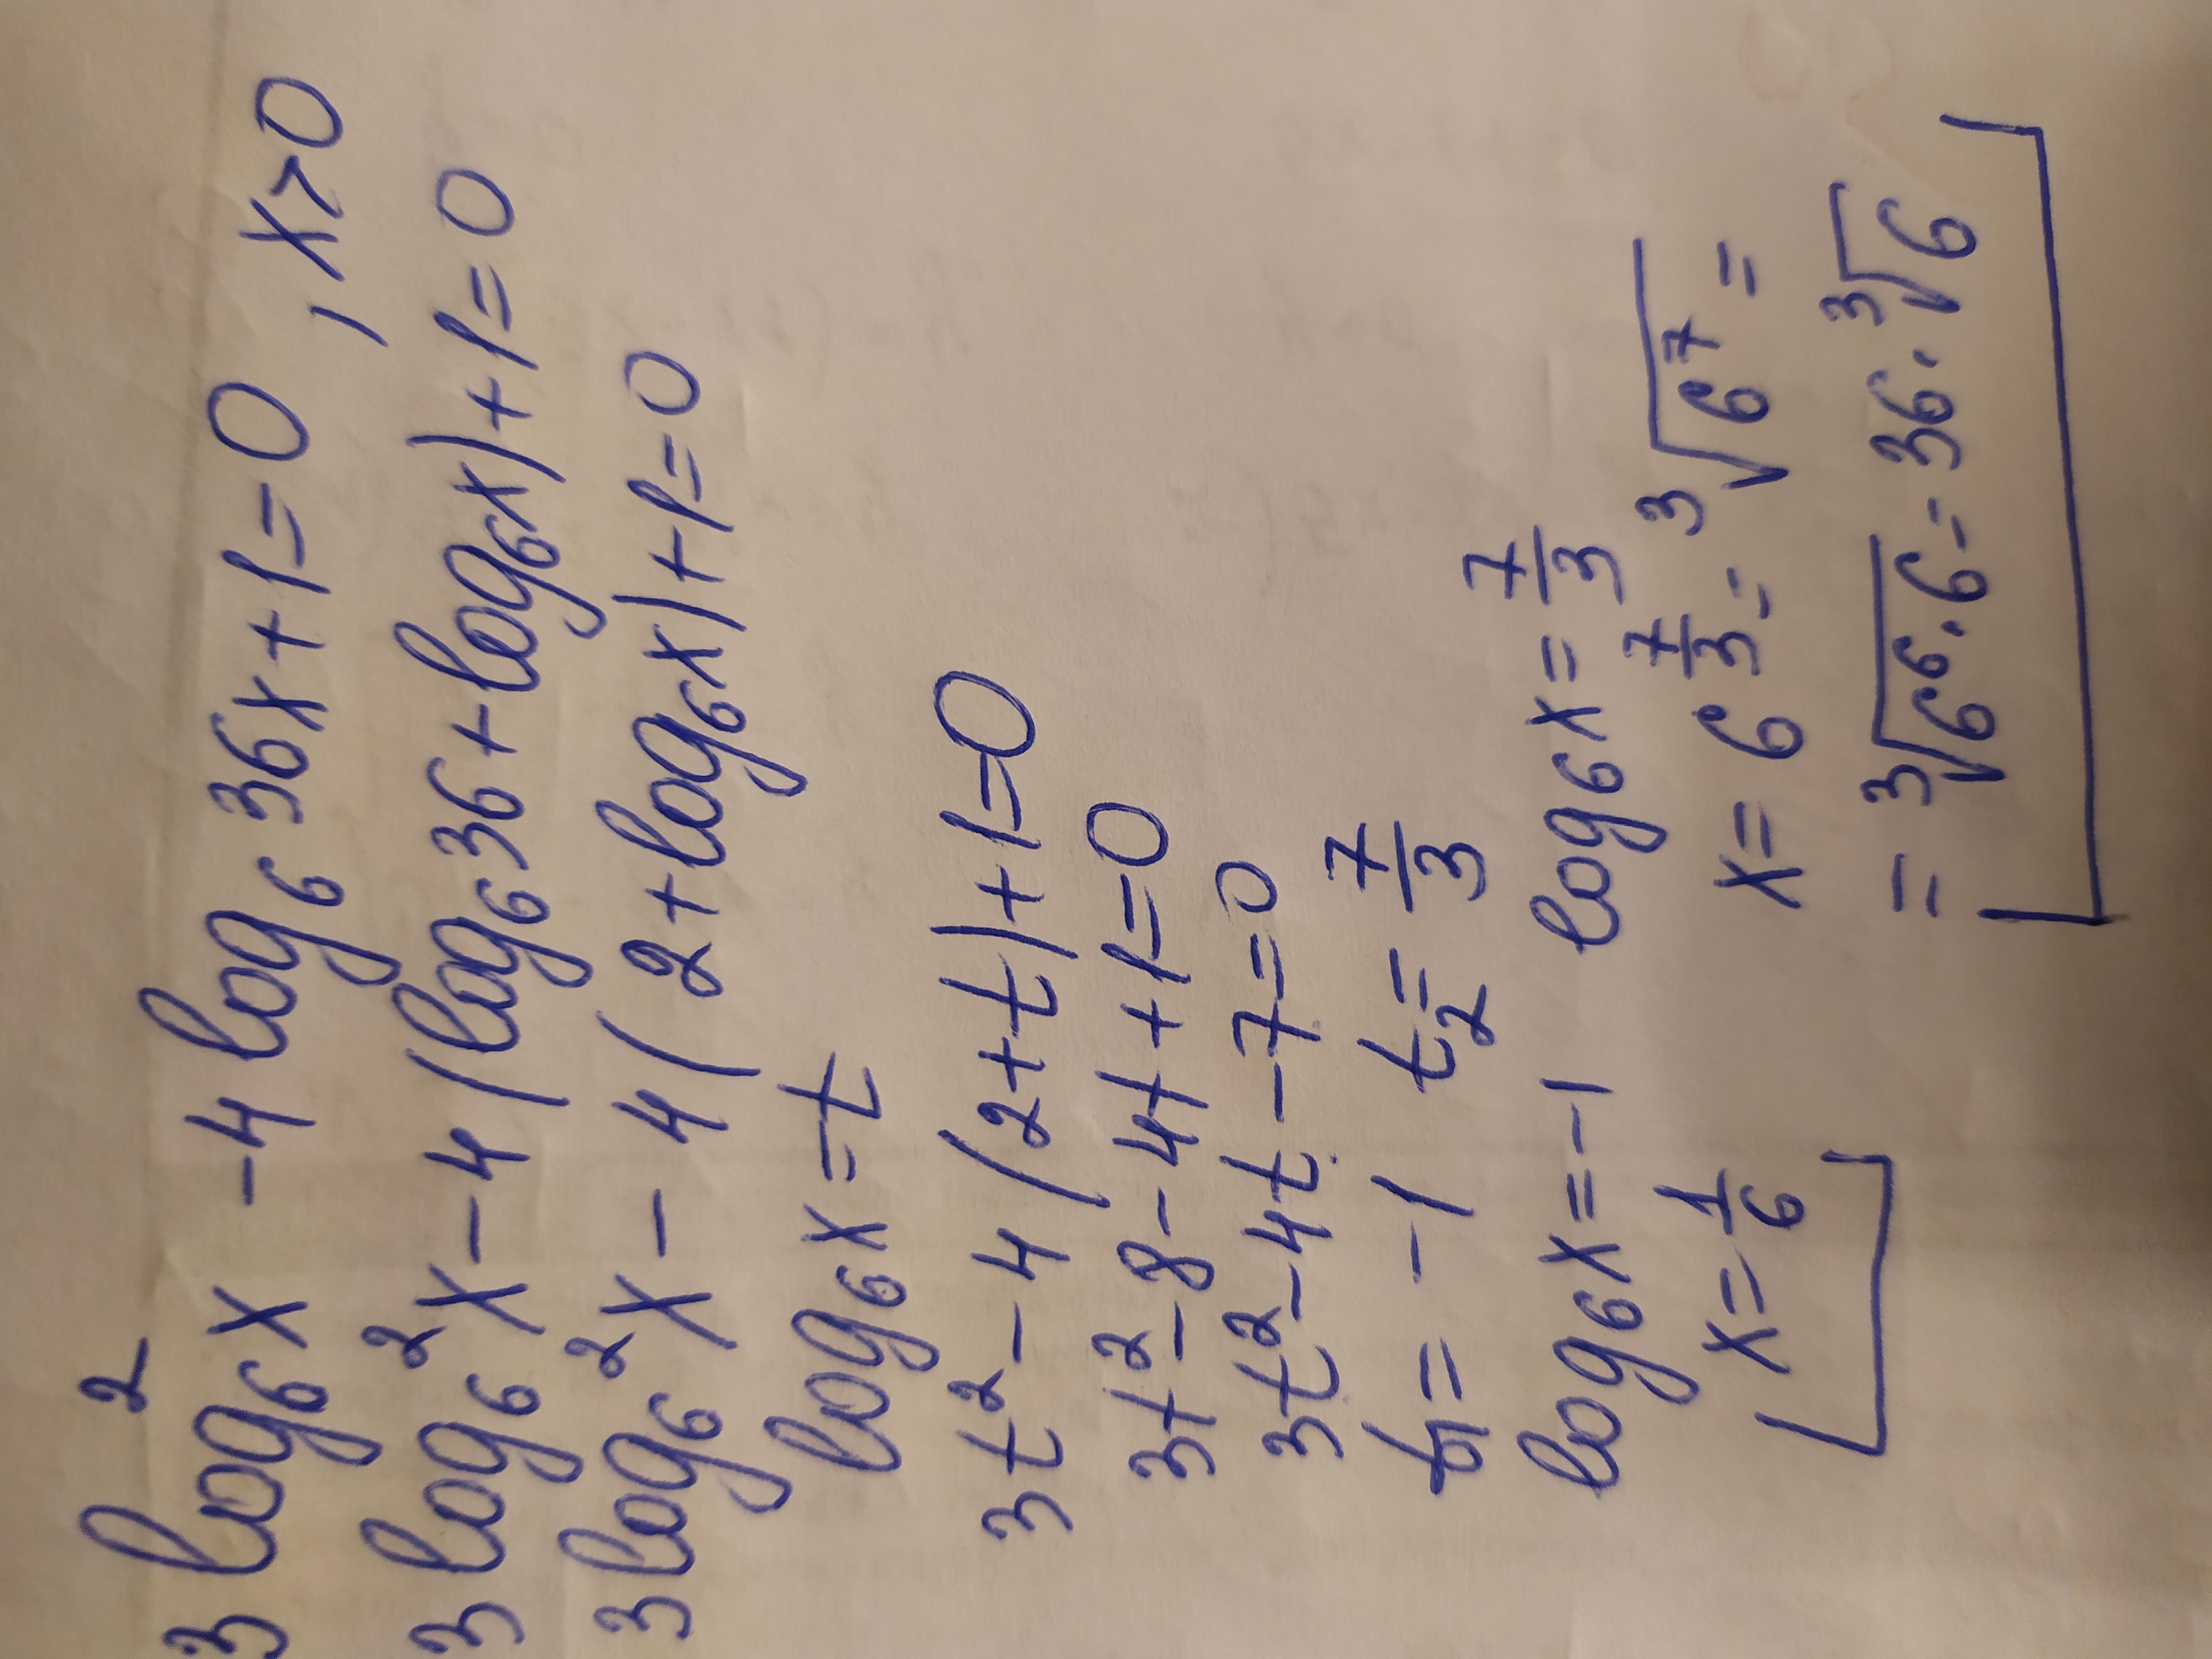 3 log₆² x - 4 log₆ 36x + 1 = 0 , x > 0
3 log₆² x - 4 (log₆ 36 + log₆ x) + 1 = 0
3 log₆² x - 4 (2 + log₆ x) + 1 = 0
log₆ x = t
3t² - 4 (2 + t) + 1 = 0
3t² - 8 - 4t + 1 = 0
3t² - 4t - 7 = 0
t₁ = -1 t₂ = 7/3
log₆ x = -1 log₆ x = 7/3
x = 1/6 x = 6^(7/3) = ³√(6⁷) =
= ³√(6⁶·6) = 36·³√6